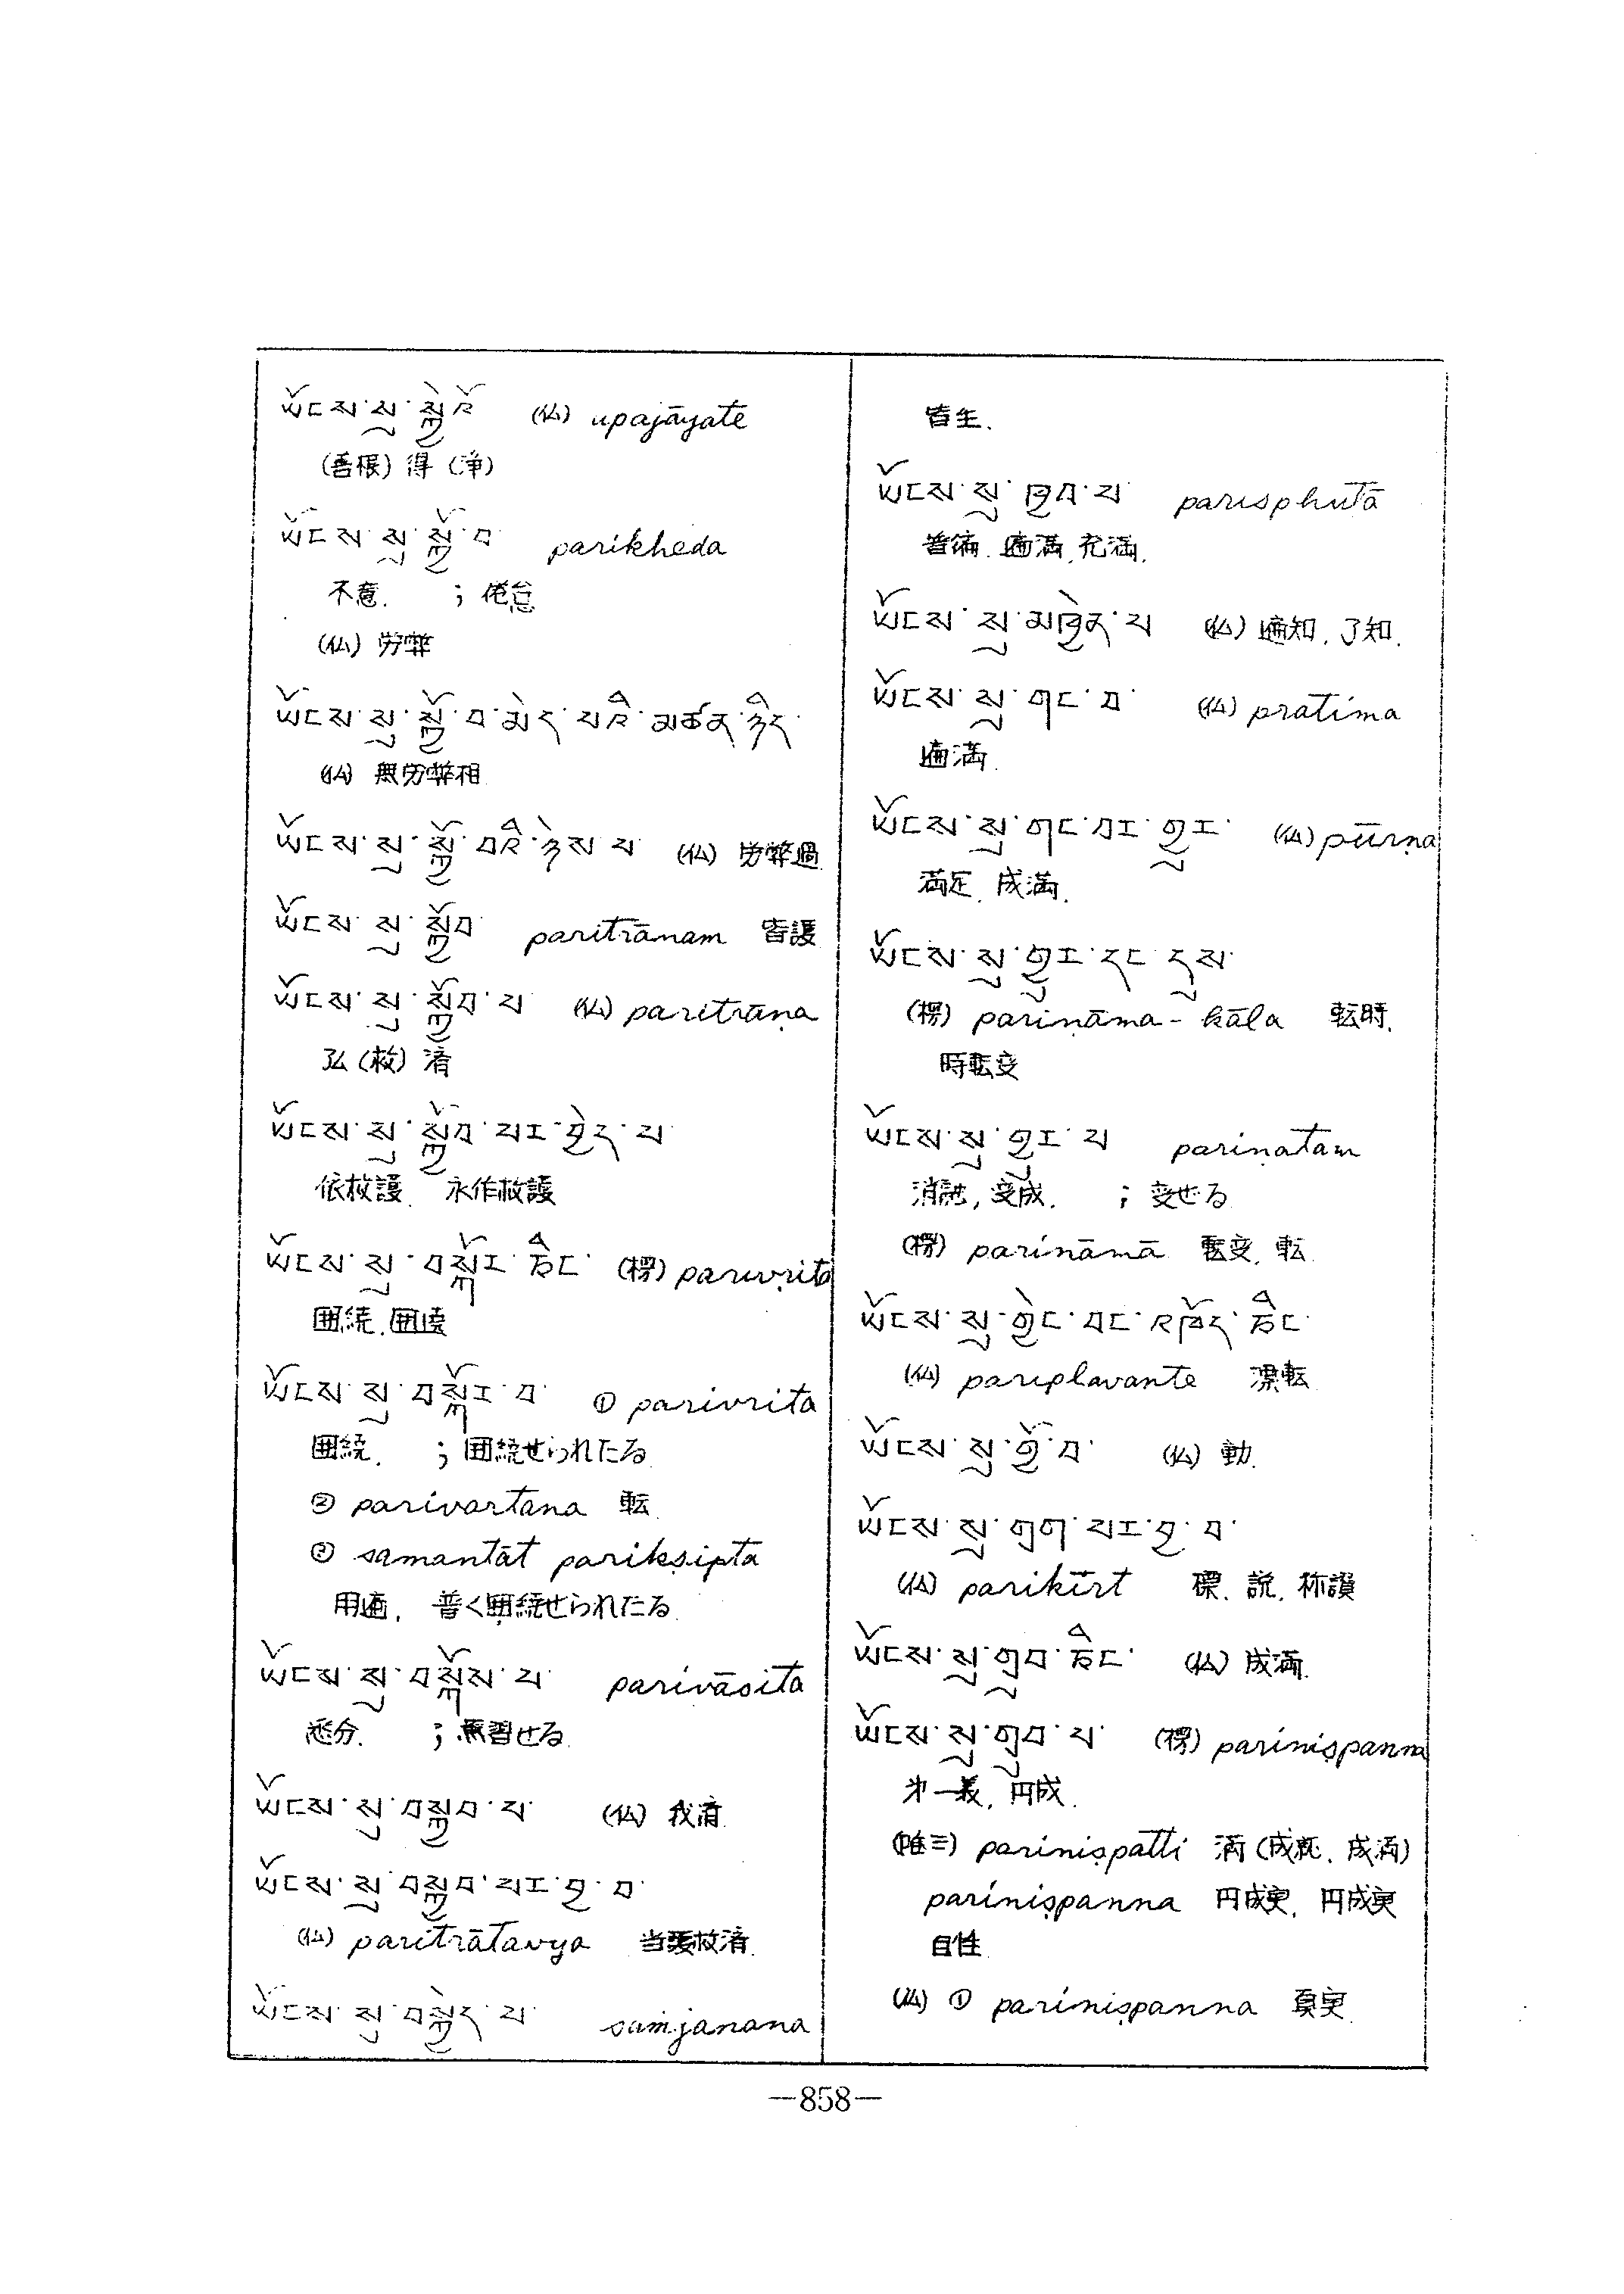 ཡོངས་སུ་སྐྱེའོ (仏) upajāyate
(善根) 得 (浄)
ཡོངས་སུ་སྐྱོ་བ parikheda
不意. ; 倦怠
(仏) 労弊
ཡོངས་སུ་སྐྱོ་བ་མེད་པའི་མཚན་ཉིད་
(仏) 無労弊相
ཡོངས་སུ་སྐྱོ་བའི་ཉེས་པ (仏) 労弊過.
ཡོངས་སུ་སྐྱོབ་ paritrāmam 皆護
ཡོངས་སུ་སྐྱོབ་པ (仏) paritrāṇa
弘 (救) 済
ཡོངས་སུ་སྐྱོབ་པར་བྱེད་པ་
依救護. 永作救護
ཡོངས་སུ་བསྐོར་ཅིང་ (楞) parivṛita
囲繞. 囲遶
ཡོངས་སུ་བསྐོར་བ་ ① parivrita
囲繞. ; 囲繞せられたる
② parivartana 転
③ samantāt parikṣipta
用遍, 普く囲繞せられたる.
ཡོངས་སུ་བསྐོས་པ་ parivāsita
悉分. ; 熏習せる.
ཡོངས་སུ་བསྐྱབ་པ་ (仏) 救済.
ཡོངས་སུ་བསྐྱབ་པར་བྱ་བ་
(仏) paritrātavya 当爰救済.
ཡོངས་སུ་བསྐྱེད་པ་ saṁjanana
皆生.
ཡོངས་སུ་ཁྱབ་པ་ parisphutā
普徧. 遍満. 充満.
ཡོངས་སུ་མཁྱེན་པ (仏) 遍知. 了知.
ཡོངས་སུ་གང་བ་ (仏) pratima
遍満.
ཡོངས་སུ་གང་བར་གྱུར་ (仏) pūrṇa
満足. 成満.
ཡོངས་སུ་གྱུར་དང་དུས་
(楞) pariṇāma-kāla 転時.
時転変
ཡོངས་སུ་གྱུར་པ pariṇatam
消融, 変成. ; 変せる
(楞) parināmā 転変. 転.
ཡོངས་སུ་གྱེང་བང་འཁོད་ཅིང་
(仏) pariplavante 漂転.
ཡོངས་སུ་གྱོ་བ་ (仏) 動.
ཡོངས་སུ་གྲག་པར་བྱ་བ་
(仏) parikīrt 標. 説. 称讃
ཡོངས་སུ་གྲུབ་ཅིང་ (仏) 成満.
ཡོངས་སུ་གྲུབ་པ་ (楞) pariniṣpanna
㐧一義. 円成.
(唯三) pariniṣpatti 満 (成就. 成満)
pariniṣpanna 円成実. 円成実
自性.
(仏) ① pariniṣpanna 真実.
—858—